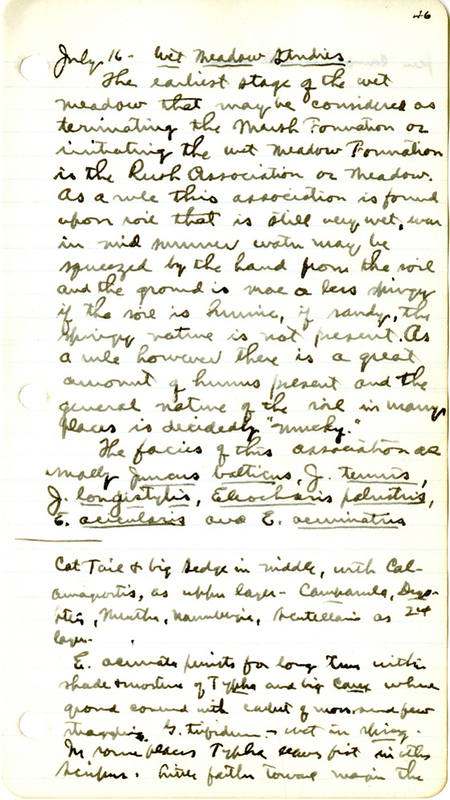 46
July 16 - Wet Meadow Studies.
The earliest stage of the wet
meadow that may be considered as
terminating the Marsh Formation or
initiating the wet Meadow Formation
is the Rush Association or Meadow.
As a rule this association is found
upon soil that is still very wet, even
in mid summer water may be
squeezed by the hand from the soil
and the ground is more or less springy
if the soil is humic, if sandy, the
springy nature is not present. As
a rule however there is a great
amount of humus present and the
general nature of the soil in many
places is decidedly "mucky."
The facies of this association are
usually Juncus balticus, J. tenuis,
J. longistylis, Eleocharis palustris,
E. acicularis and E. acuminatus
Cat Tail & big Sedge in middle, with Cal-
amagrostis, as upper layer - Campanula, Dryo-
pteris, Mentha, Naumbergia, Scutellaria as 2nd
layer.
E. acuminata persists for long time with
shade & moisture of Typha and big Carex where
ground covered with carpet of moss and few
straggling G. trifidum - wet in spring.
In some places Typha seems first in other
Scirpus. Little farther toward margin the